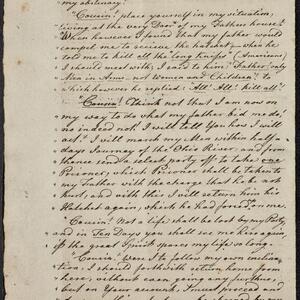 my obituary!
"Cousin! place yourself in my situation,
living at the very Door of my Father's house!
When however I found that my father would
compel me to receive the hatchet — when he
told me to kill all the long knifes (Americans)
I should meet with, I ask'd him: "Father! only
Men in Arms, not Women and Children!" to
which however he replied: "All! All! kill all!"
"Cousin! Think not that I am now on
my way to do what my father bid me do!
no indeed not! I will tell You how I will
act. I will march my Men within half a
days Journey of the Ohio River, and from
thence send a select party off to take one
Prisoner, which Prisoner shall be taken to
my Father with the charge that he be not
hurt; and with this I will return him his
Hatchet again, which he had forced on me.
"Cousin! Not a life shall be lost by my Party,
and in Ten Days you will see me here again
if the great Spirit spares my life so long.
"Cousin! Were I to follow my own inclina-
tion, I should forthwith return home from
here, without even going any further,
but on Your account, I must proceed and